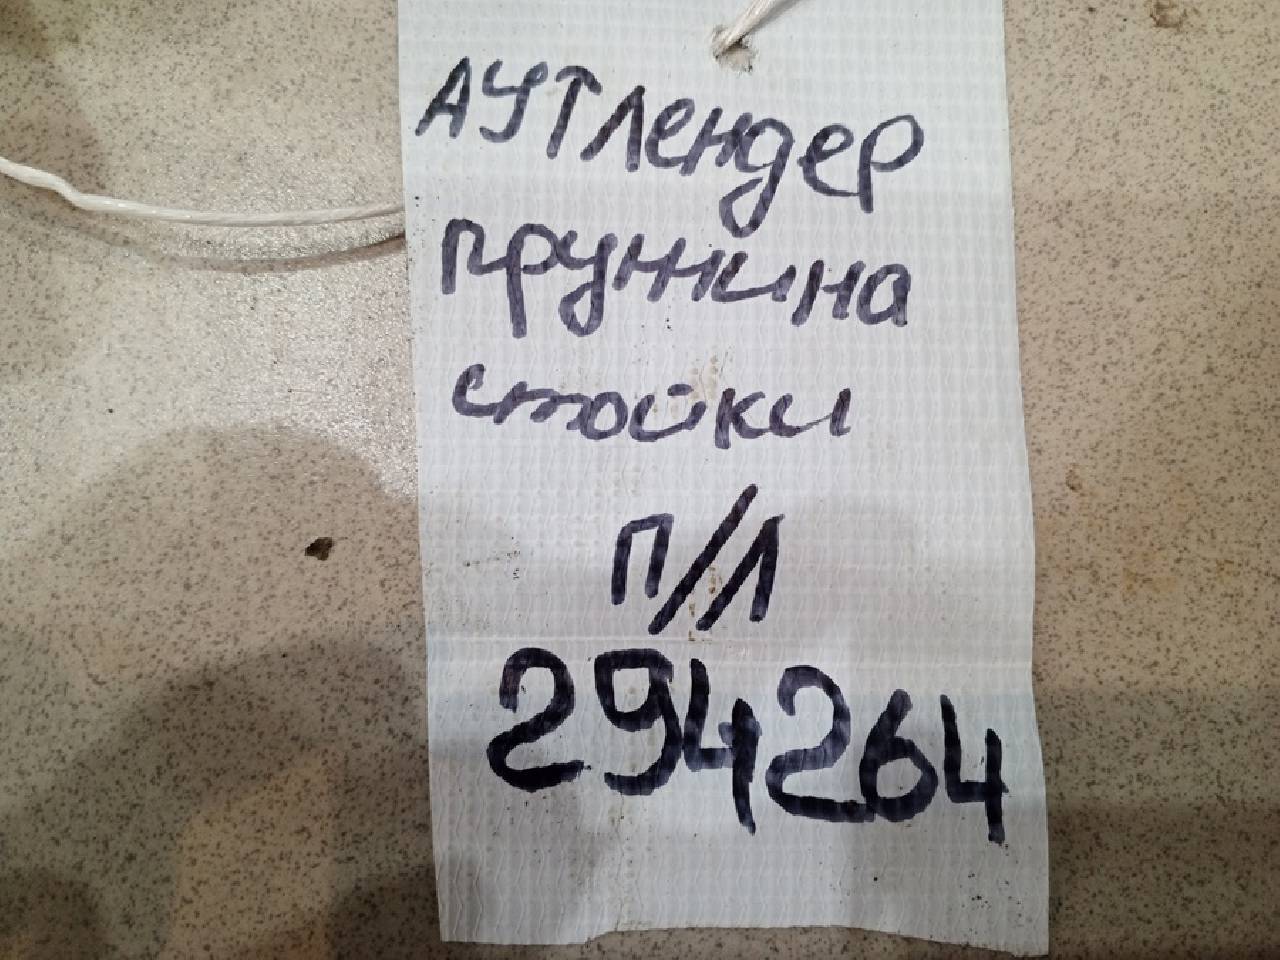 Аутлендер
пружина
стойки
П/Л
294264